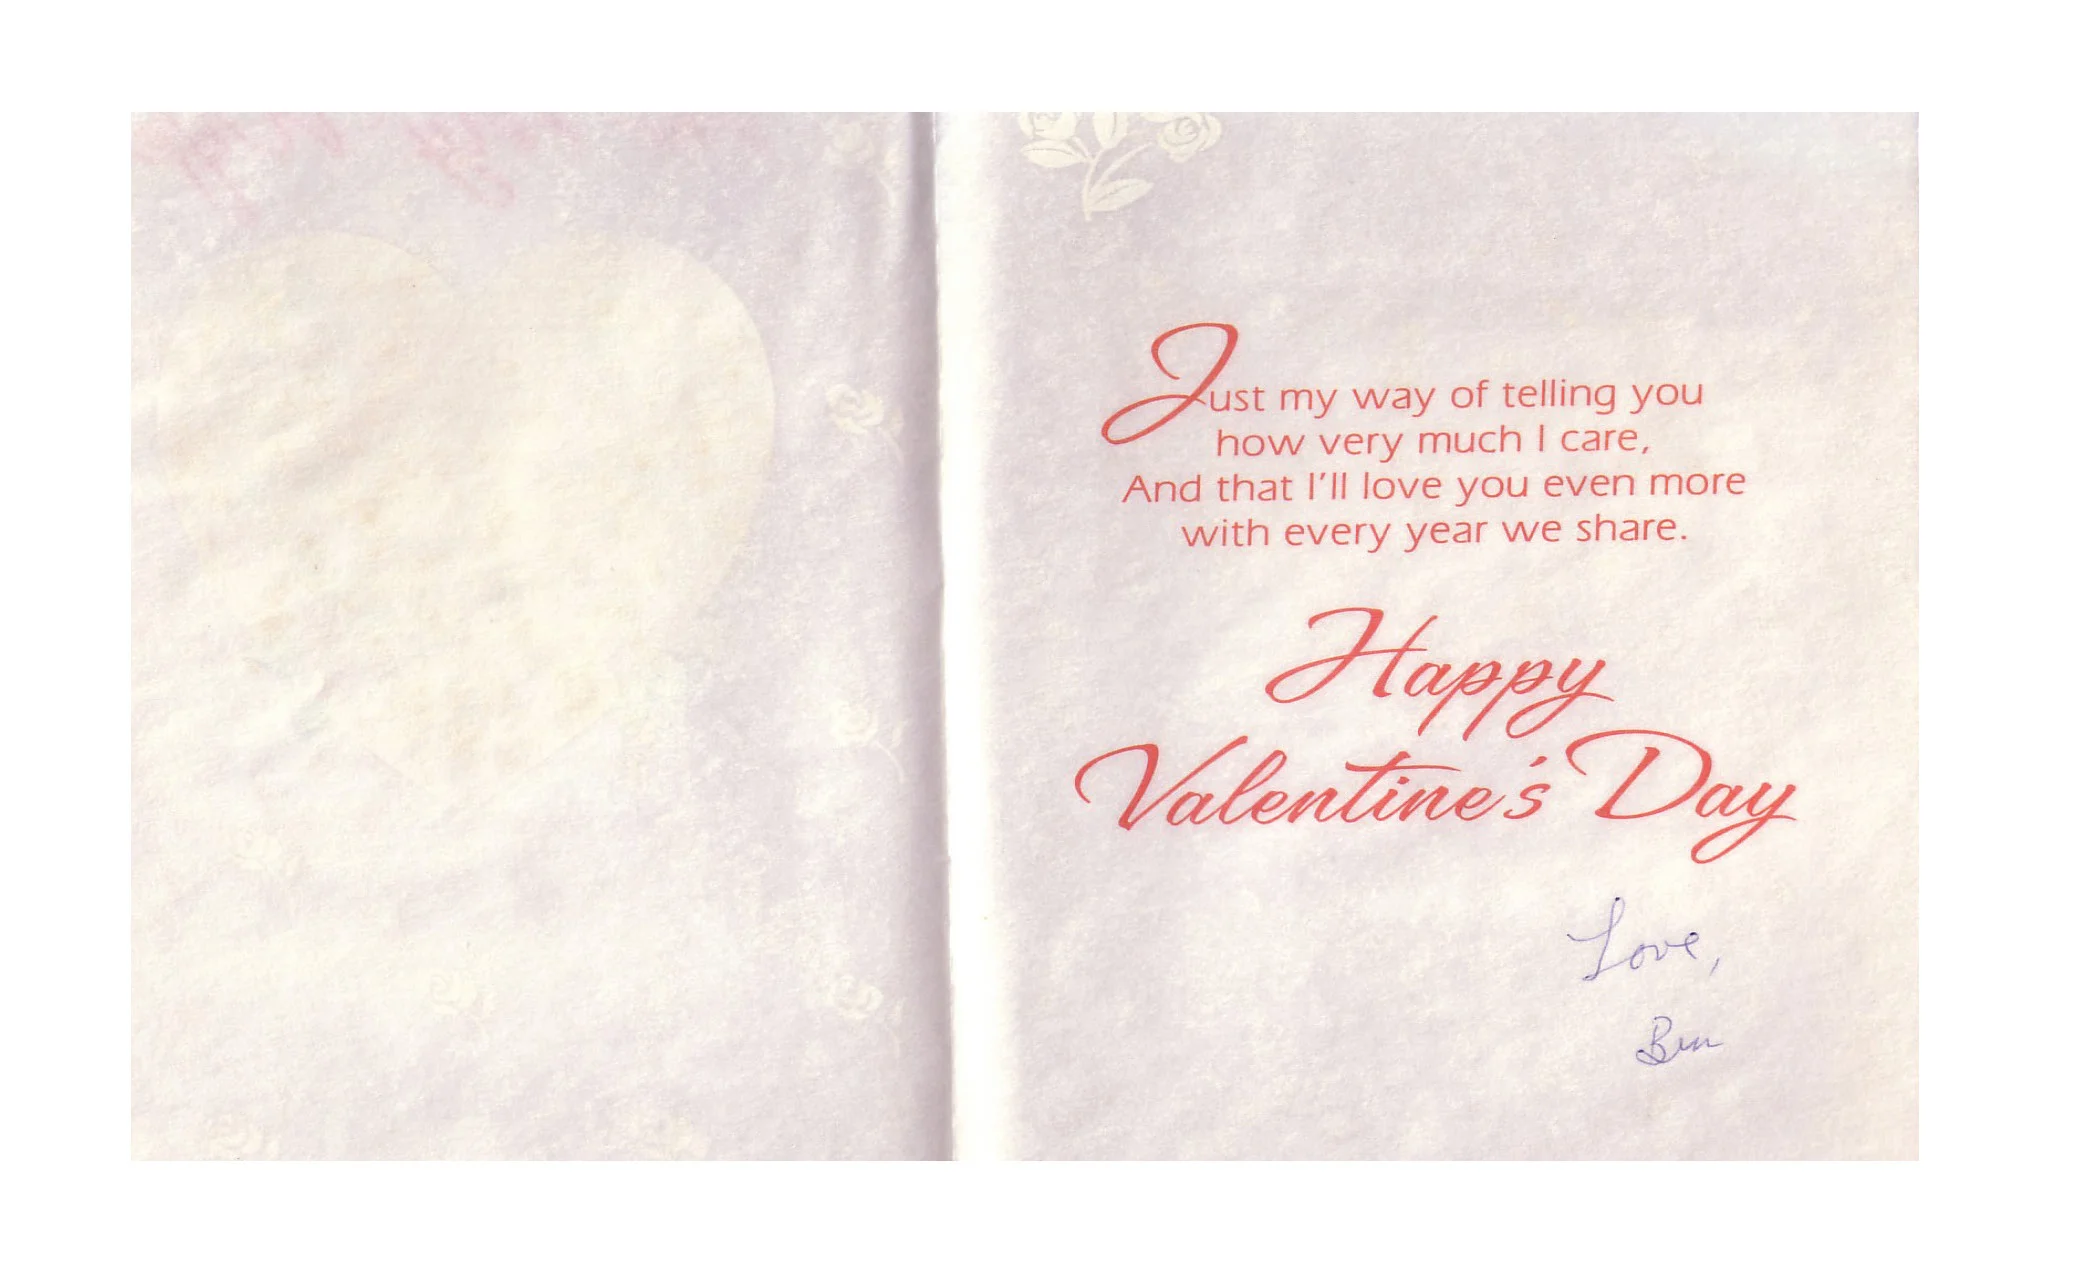 Just my way of telling you
how very much I care,
And that I'll love you even more
with every year we share.
Happy
Valentine's Day
Love,
Ben